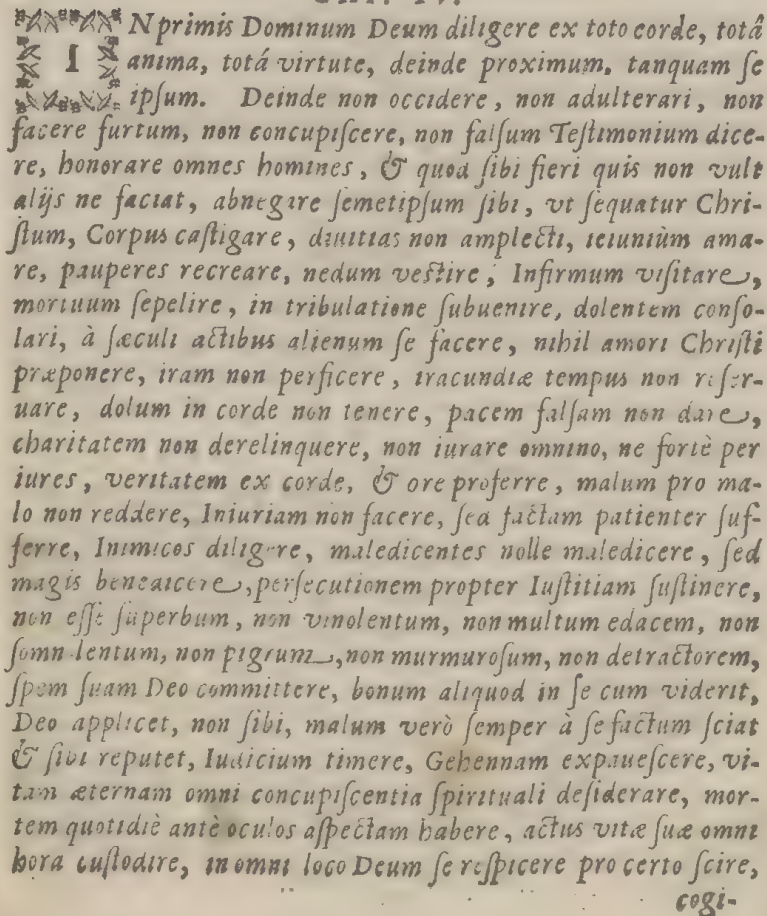 CAP. IV.
IN primis Dominum Deum diligere ex toto corde, totâ
anima, totá virtute, deinde proximum, tanquam ſe
ipſum. Deinde non occidere, non adulterari, non
facere furtum, non concupiſcere, non falſum Teſtimonium dice-
re, honorare omnes homines, & quod ſibi fieri quis non vult
alijs ne faciat, abnegare ſemetipſum ſibi, vt ſequatur Chri-
ſtum, Corpus caſtigare, diuitias non amplecti, ieiuniùm ama-
re, pauperes recreare, nedum veſtire, Infirmum viſitare,
mortuum ſepelire, in tribulatione ſubuenire, dolentem conſo-
lari, à ſæculi actibus alienum ſe facere, nihil amori Chriſti
præponere, iram non perficere, iracundiæ tempus non reſer-
uare, dolum in corde non tenere, pacem falſam non dare,
charitatem non derelinquere, non iurare omnino, ne fortè per
iures, veritatem ex corde, & ore proferre, malum pro ma-
lo non reddere, Iniuriam non facere, ſed factam patienter ſuf-
ferre, Inimicos diligere, maledicentes nolle maledicere, ſed
magis benedicere, perſecutionem propter Iuſtitiam ſuſtinere,
non eſſe ſuperbum, non vinolentum, non multum edacem, non
ſomnolentum, non pigrum, non murmuroſum, non detractorem,
ſpem ſuam Deo committere, bonum aliquod in ſe cum viderit,
Deo applicet, non ſibi, malum verò ſemper à ſe factum ſciat
& ſibi reputet, Iudicium timere, Gehennam expaueſcere, vi-
tam æternam omni concupiſcentia ſpirituali deſiderare, mor-
tem quotidiè antè oculos aſpectam habere, actus vitæ ſuæ omni
hora cuſtodire, in omni loco Deum ſe reſpicere pro certo ſcire,
cogi-